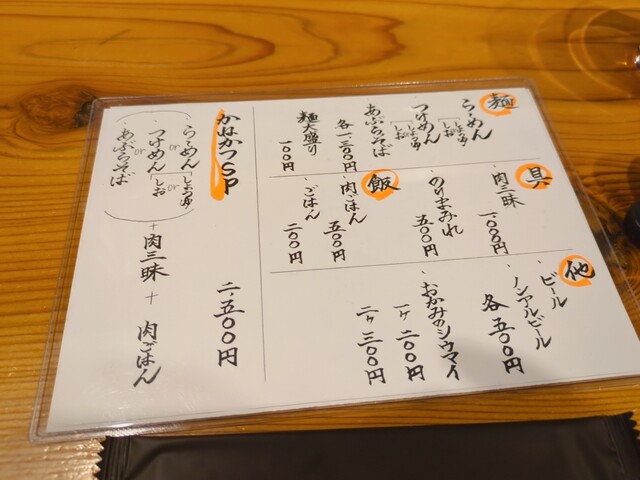 麺
らーめん
しょうゆ
しお
つけめん
しょうゆ
しお
あぶらそば
各一、三〇〇円
麺大盛り
一〇〇円
具
・肉三昧
一、〇〇〇円
・のりまみれ
五〇〇円
飯
・肉ごはん
五〇〇円
・ごはん
二〇〇円
他
・ビール
・ノンアルビール
各五〇〇円
・おかみのシウマイ
一ヶ 二〇〇円
二ヶ 三〇〇円
かねかつSP
二、五〇〇円
らーめん
or
しょうゆ
or
しお
・つけめん
or
あぶらそば
+
肉三昧
+
肉ごはん